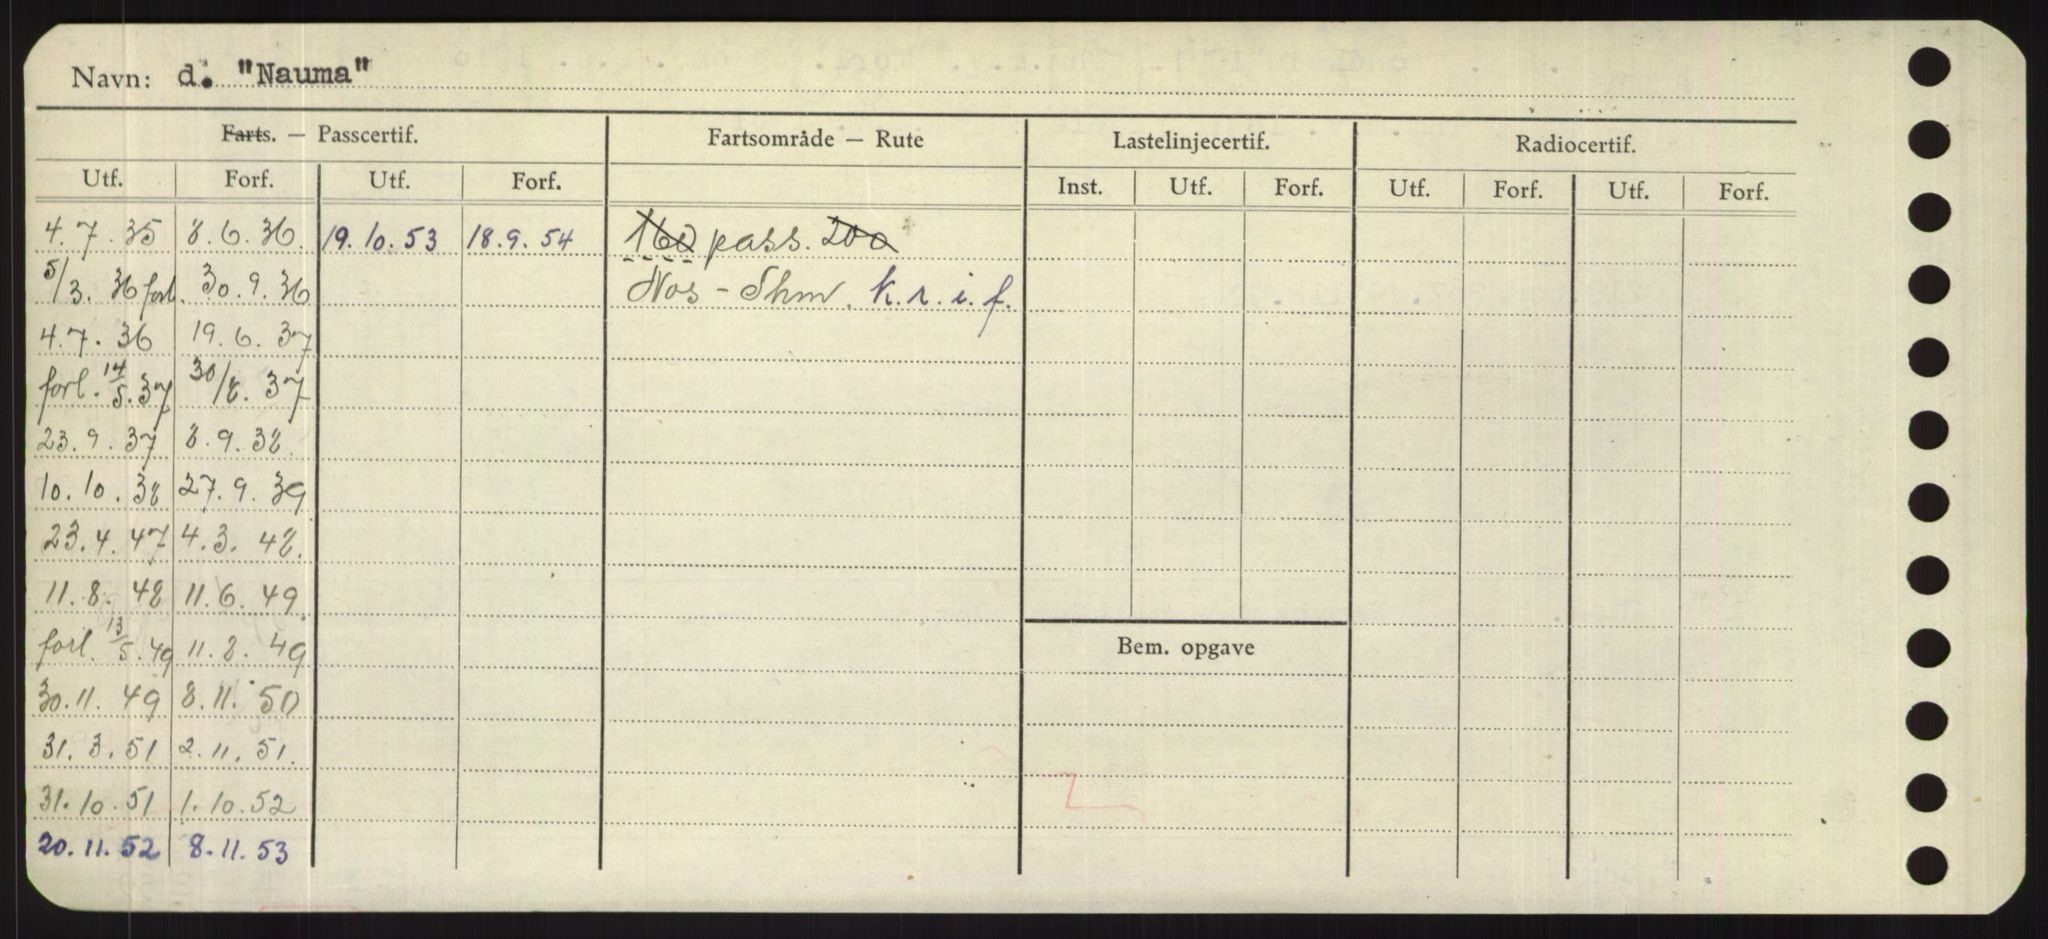 Navn: d. "Nauma"
Farts. — Passcertif. Fartsområde — Rute Lastelinjecertif. Radiocertif.
Utf. Forf. Utf. Forf. Inst. Utf. Forf. Utf. Forf. Utf. Forf.
4.7.35 8.6.36. 19.10.53 18.9.54 160 pass. 200
5/3.36 forl. 30.9.36 Nos - Shm. k.r.i.f.
4.7.36 19.6.37
forl. 14/5.37 30/8.37
23.9.37 8.9.38
10.10.38 27.9.39
23.4.47 4.3.48.
11.8.48 11.6.49.
forl. 13/5.49 11.8.49
Bem. opgave
30.11.49 8.11.50
31.3.51 2.11.51.
31.10.51 1.10.52
20.11.52 8.11.53